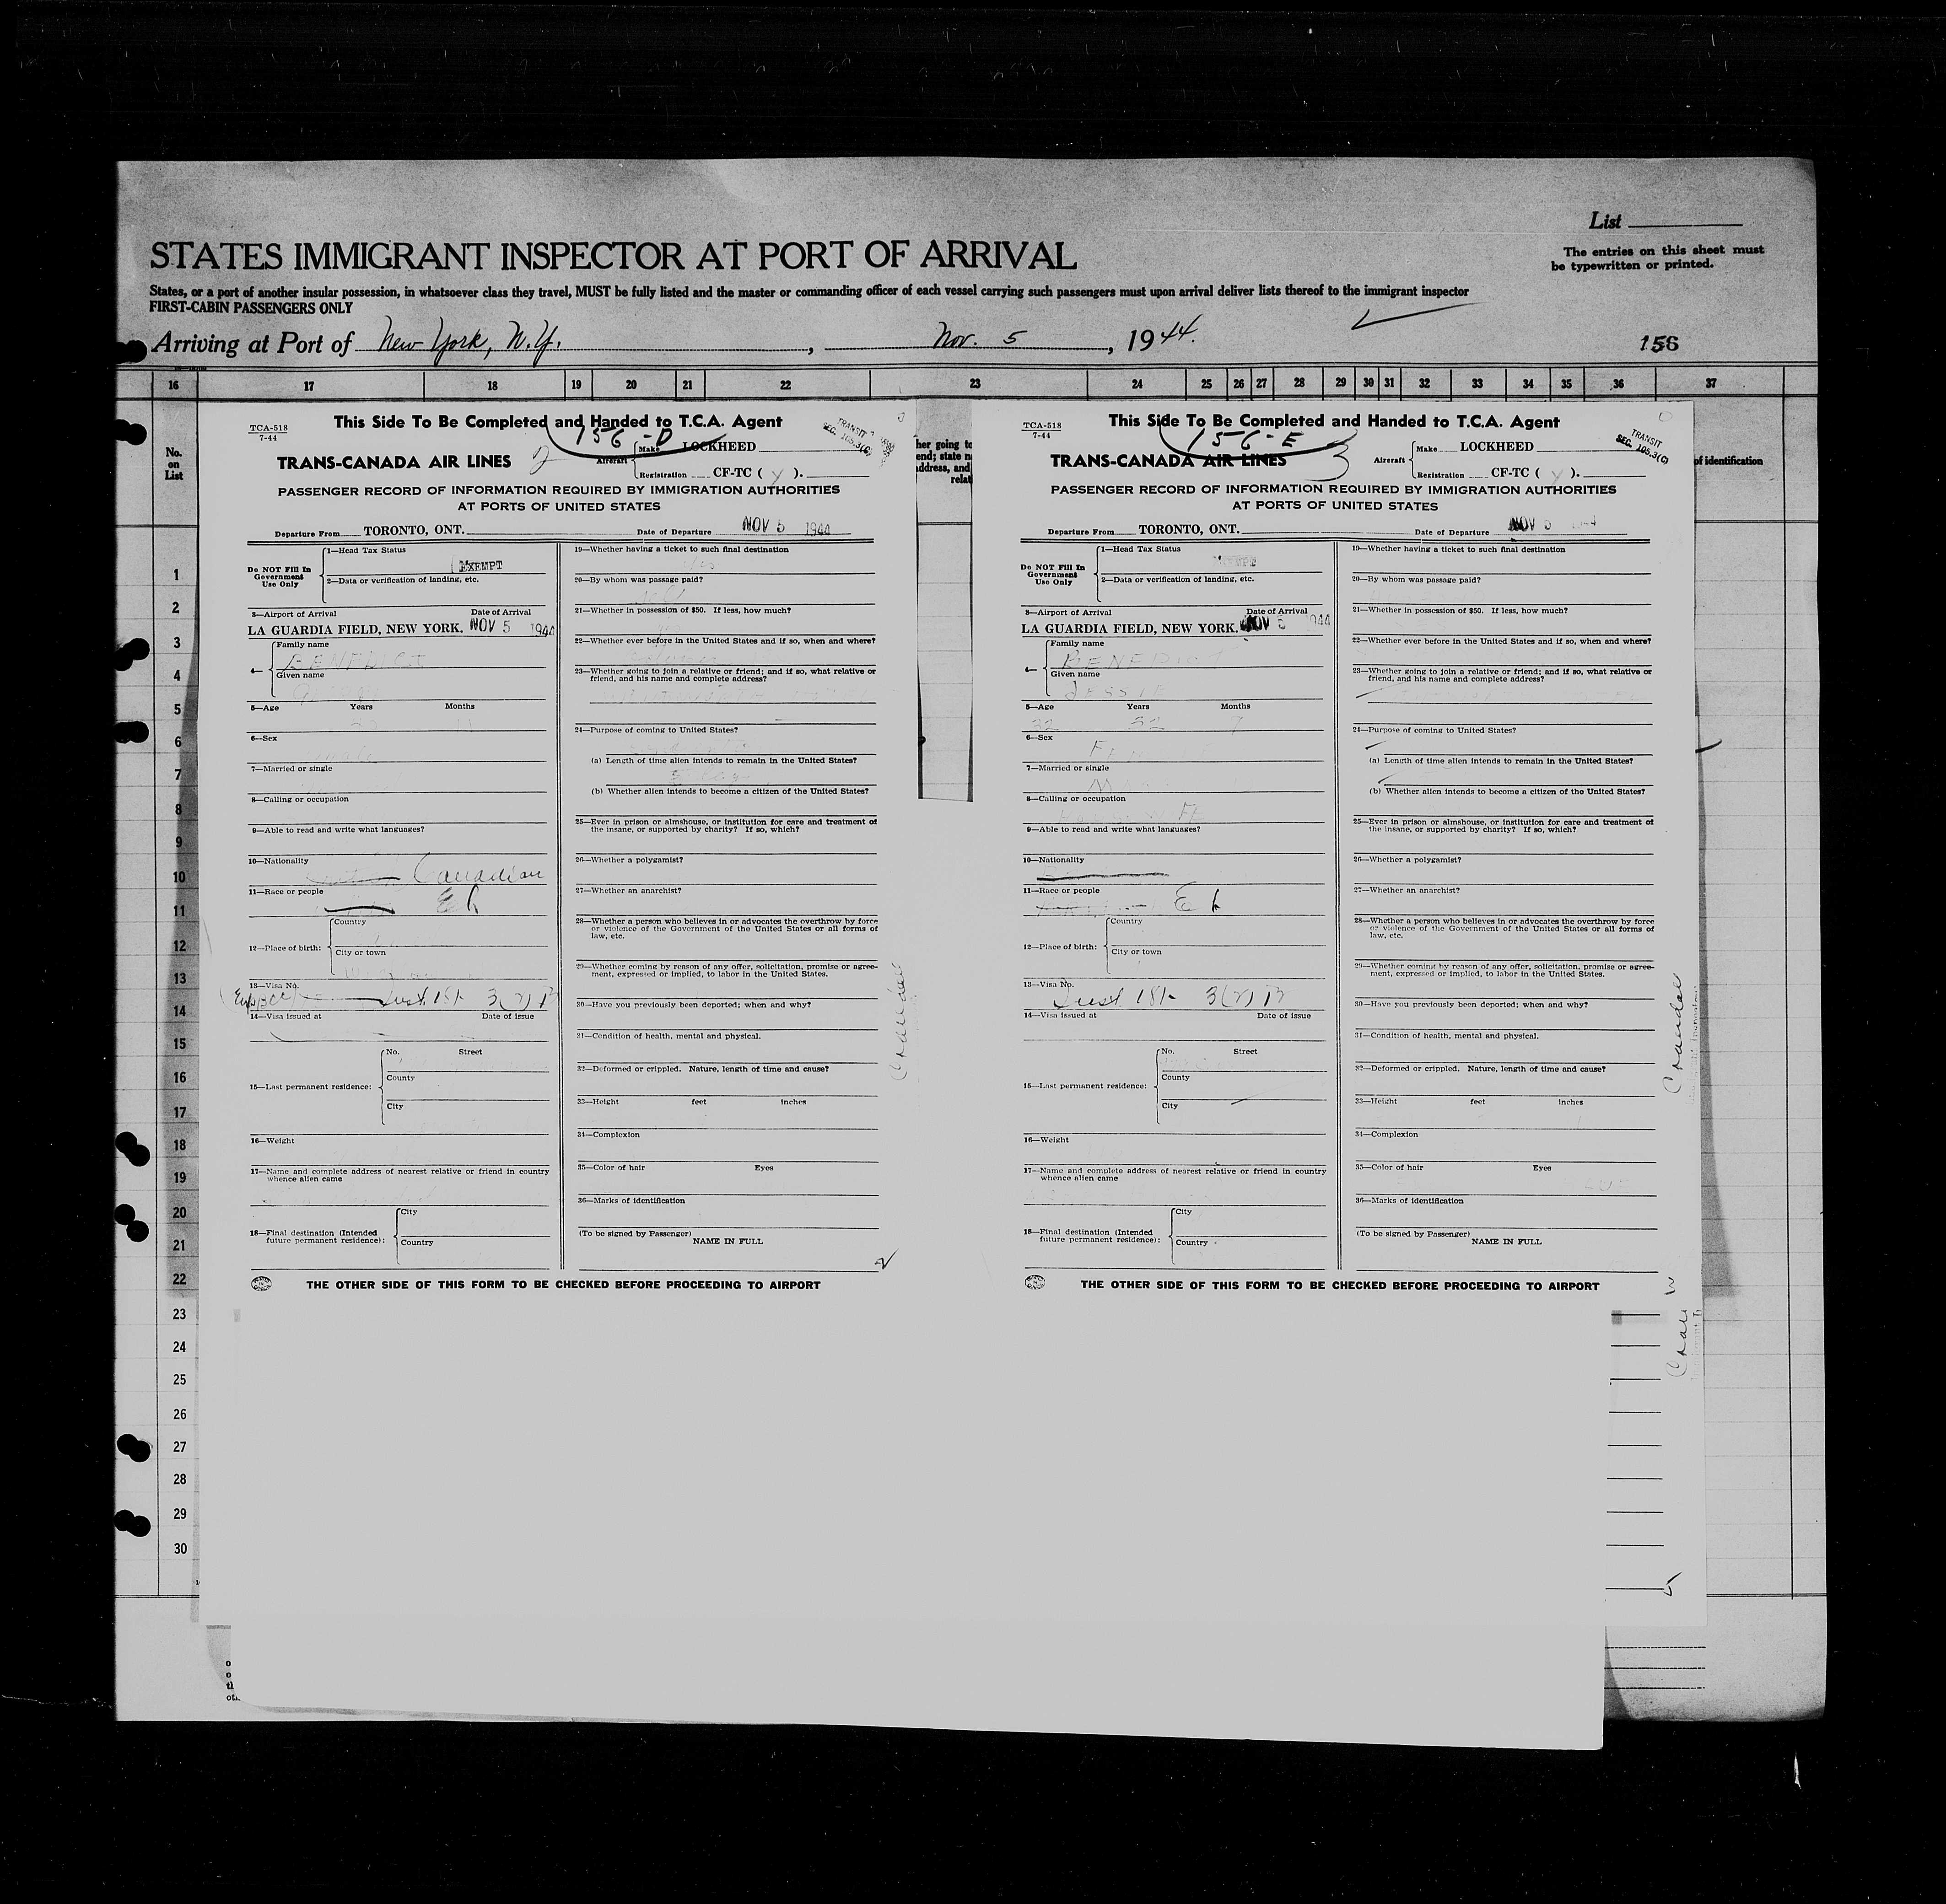 List
STATES IMMIGRANT INSPECTOR AT PORT OF ARRIVAL
The entries on this sheet must
be typewritten or printed.
States, or a port of another insular possession, in whatsoever class they travel, MUST be fully listed and the master or commanding officer of each vessel carrying such passengers must upon arrival deliver lists thereof to the immigrant inspector
FIRST-CABIN PASSENGERS ONLY
Arriving at Port of New York, N.Y., Nov. 5, 1944.
156
16 17 18 19 20 21 22 23 24 25 26 27 28 29 30 31 32 33 34 35 36 37
No.
on
List
1
2
3
4
5
6
7
8
9
10
11
12
13
14
15
16
17
18
19
20
21
22
23
24
25
26
27
28
29
30
TCA-518
7-44
This Side To Be Completed and Handed to T.C.A. Agent
156-D
TRANSIT
SEC. 105.3(C)
TRANS-CANADA AIR LINES 2
Aircraft
Make LOCKHEED
Registration CF-TC ( Y ).
PASSENGER RECORD OF INFORMATION REQUIRED BY IMMIGRATION AUTHORITIES
AT PORTS OF UNITED STATES
Departure From TORONTO, ONT. Date of Departure NOV 5 1944
Do NOT Fill In
Government
Use Only
1—Head Tax Status
EXEMPT
2—Data or verification of landing, etc.
3—Airport of Arrival Date of Arrival
LA GUARDIA FIELD, NEW YORK. NOV 5 1944
4—
Family name
BENEDICT
Given name
5—Age Years Months
6—Sex
7—Married or single
8—Calling or occupation
9—Able to read and write what languages?
10—Nationality
Canadian
11—Race or people
12—Place of birth:
Country
City or town
13—Visa No.
3(2)
14—Visa issued at Date of issue
15—Last permanent residence:
No. Street
County
City
16—Weight
17—Name and complete address of nearest relative or friend in country
whence alien came
18—Final destination (Intended
future permanent residence):
City
Country
19—Whether having a ticket to such final destination
20—By whom was passage paid?
21—Whether in possession of $50. If less, how much?
22—Whether ever before in the United States and if so, when and where?
23—Whether going to join a relative or friend; and if so, what relative or
friend, and his name and complete address?
24—Purpose of coming to United States?
(a) Length of time alien intends to remain in the United States?
(b) Whether alien intends to become a citizen of the United States?
25—Ever in prison or almshouse, or institution for care and treatment of
the insane, or supported by charity? If so, which?
26—Whether a polygamist?
27—Whether an anarchist?
28—Whether a person who believes in or advocates the overthrow by force
or violence of the Government of the United States or all forms of
law, etc.
29—Whether coming by reason of any offer, solicitation, promise or agree-
ment, expressed or implied, to labor in the United States.
30—Have you previously been deported; when and why?
31—Condition of health, mental and physical.
32—Deformed or crippled. Nature, length of time and cause?
33—Height feet inches
34—Complexion
35—Color of hair Eyes
36—Marks of identification
(To be signed by Passenger)
NAME IN FULL
THE OTHER SIDE OF THIS FORM TO BE CHECKED BEFORE PROCEEDING TO AIRPORT
her going to
end; state n
address, and
relat
TCA-518
7-44
This Side To Be Completed and Handed to T.C.A. Agent
156-E
TRANSIT
SEC. 105.3(C)
TRANS-CANADA AIR LINES 3
Aircraft
Make LOCKHEED
Registration CF-TC ( Y ).
PASSENGER RECORD OF INFORMATION REQUIRED BY IMMIGRATION AUTHORITIES
AT PORTS OF UNITED STATES
Departure From TORONTO, ONT. Date of Departure NOV 5 1944
Do NOT Fill In
Government
Use Only
1—Head Tax Status
EXEMPT
2—Data or verification of landing, etc.
3—Airport of Arrival Date of Arrival
LA GUARDIA FIELD, NEW YORK. NOV 5 1944
4—
Family name
BENEDICT
Given name
JESSIE
5—Age Years Months
32 32 7
6—Sex
F
7—Married or single
M
8—Calling or occupation
9—Able to read and write what languages?
10—Nationality
11—Race or people
12—Place of birth:
Country
City or town
13—Visa No.
3(2)
14—Visa issued at Date of issue
15—Last permanent residence:
No. Street
County
City
16—Weight
17—Name and complete address of nearest relative or friend in country
whence alien came
18—Final destination (Intended
future permanent residence):
City
Country
19—Whether having a ticket to such final destination
20—By whom was passage paid?
21—Whether in possession of $50. If less, how much?
22—Whether ever before in the United States and if so, when and where?
23—Whether going to join a relative or friend; and if so, what relative or
friend, and his name and complete address?
24—Purpose of coming to United States?
(a) Length of time alien intends to remain in the United States?
(b) Whether alien intends to become a citizen of the United States?
25—Ever in prison or almshouse, or institution for care and treatment of
the insane, or supported by charity? If so, which?
26—Whether a polygamist?
27—Whether an anarchist?
28—Whether a person who believes in or advocates the overthrow by force
or violence of the Government of the United States or all forms of
law, etc.
29—Whether coming by reason of any offer, solicitation, promise or agree-
ment, expressed or implied, to labor in the United States.
30—Have you previously been deported; when and why?
31—Condition of health, mental and physical.
32—Deformed or crippled. Nature, length of time and cause?
33—Height feet inches
34—Complexion
35—Color of hair Eyes
36—Marks of identification
(To be signed by Passenger)
NAME IN FULL
THE OTHER SIDE OF THIS FORM TO BE CHECKED BEFORE PROCEEDING TO AIRPORT
of identification